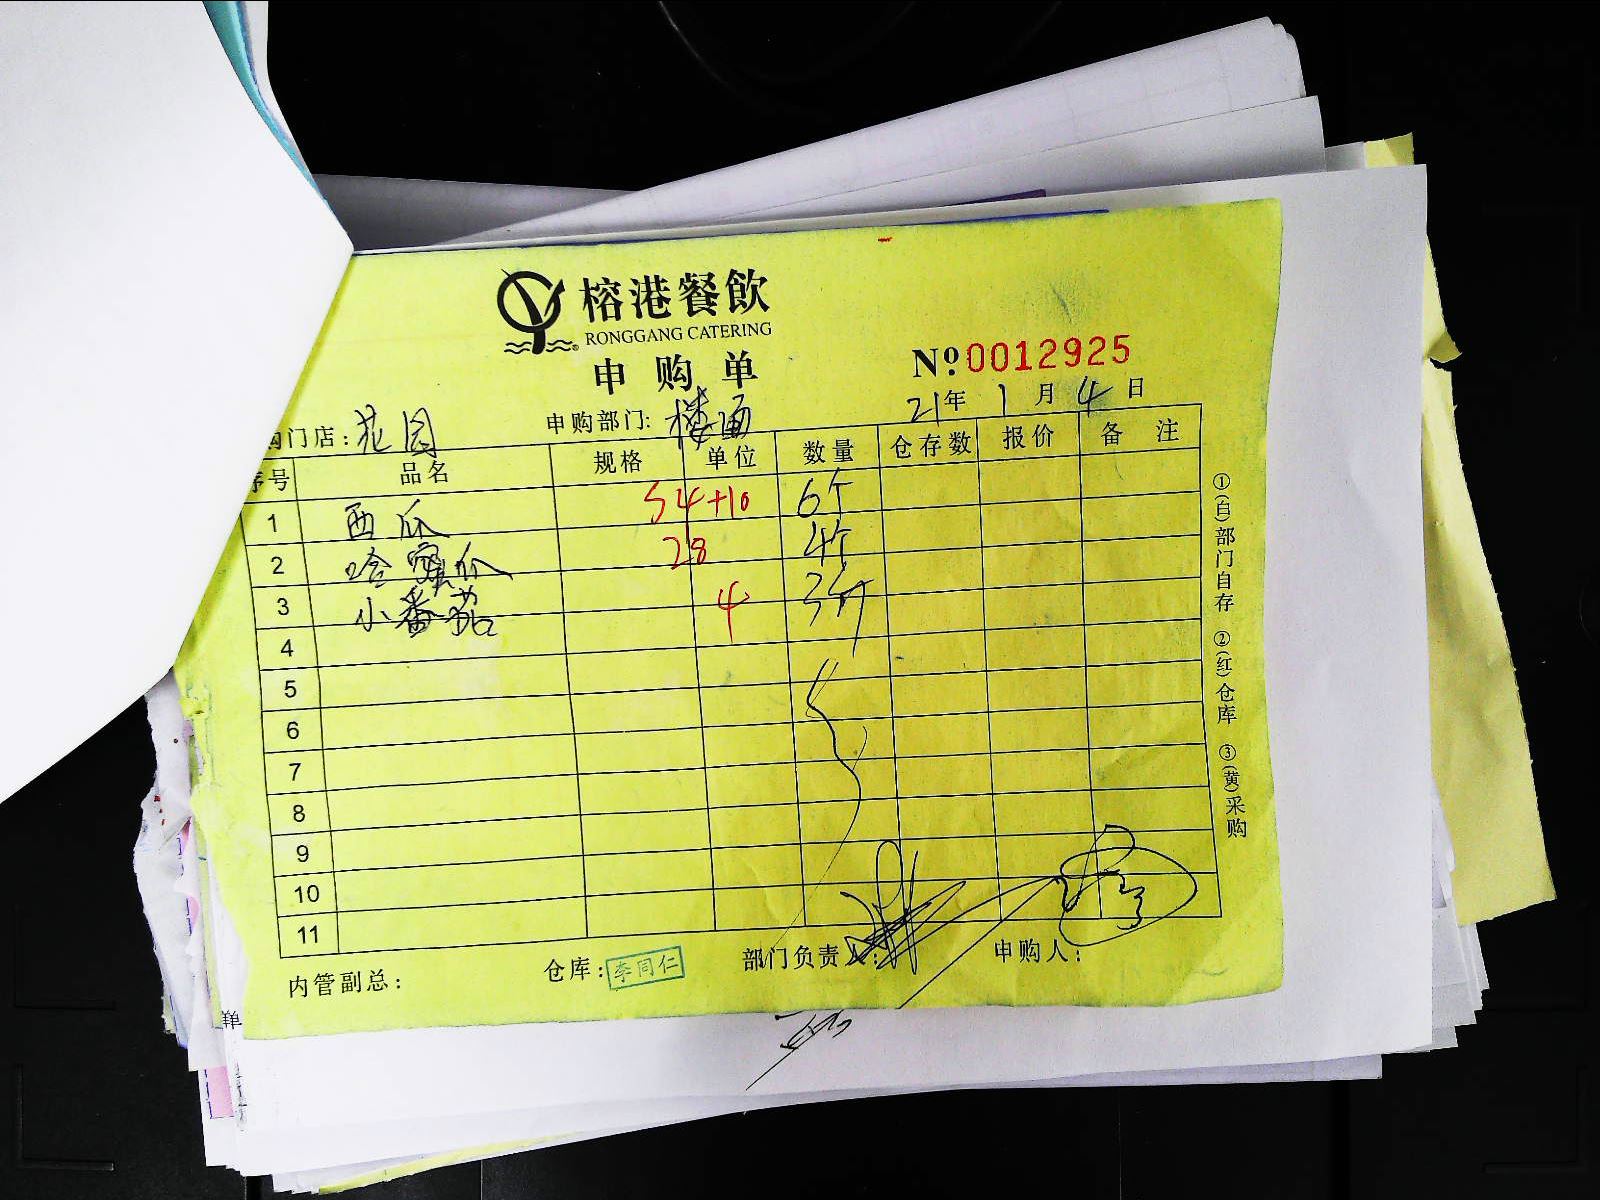 榕港餐飲
RONGGANG CATERING
申购单
Nº 0012925
21年 1月 4日
购门店：花园 申购部门：楼面
序号 品名 规格 单位 数量 仓存数 报价 备注
1 西瓜 54+10 6个
2 哈蜜瓜 28 4个
3 小番茄 4 3斤
4
5
6
7
8
9
10
11
内管副总： 仓库：李同仁 部门负责人： 申购人：
①(白)部门自存 ②(红)仓库 ③(黄)采购